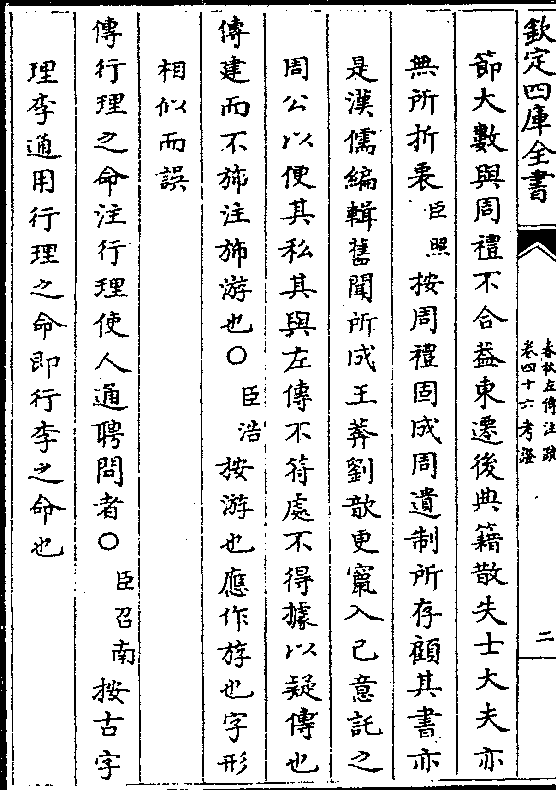 欽定四庫全書
春秋左傳注疏
卷四十六考證
二
節大數與周禮不合葢東遷後典籍散失士大夫亦
無所折衷臣照按周禮固成周遺制所存顧其書亦
是漢儒編輯舊聞所成王莽劉歆更竄入已意託之
周公以便其私其與左傳不符處不得據以疑傳也
傳建而不旆注旆游也〇臣浩按游也應作斿也字形
相似而誤
傳行理之命注行理使人通聘問者〇臣召南按古字
理李通用行理之命即行李之命也